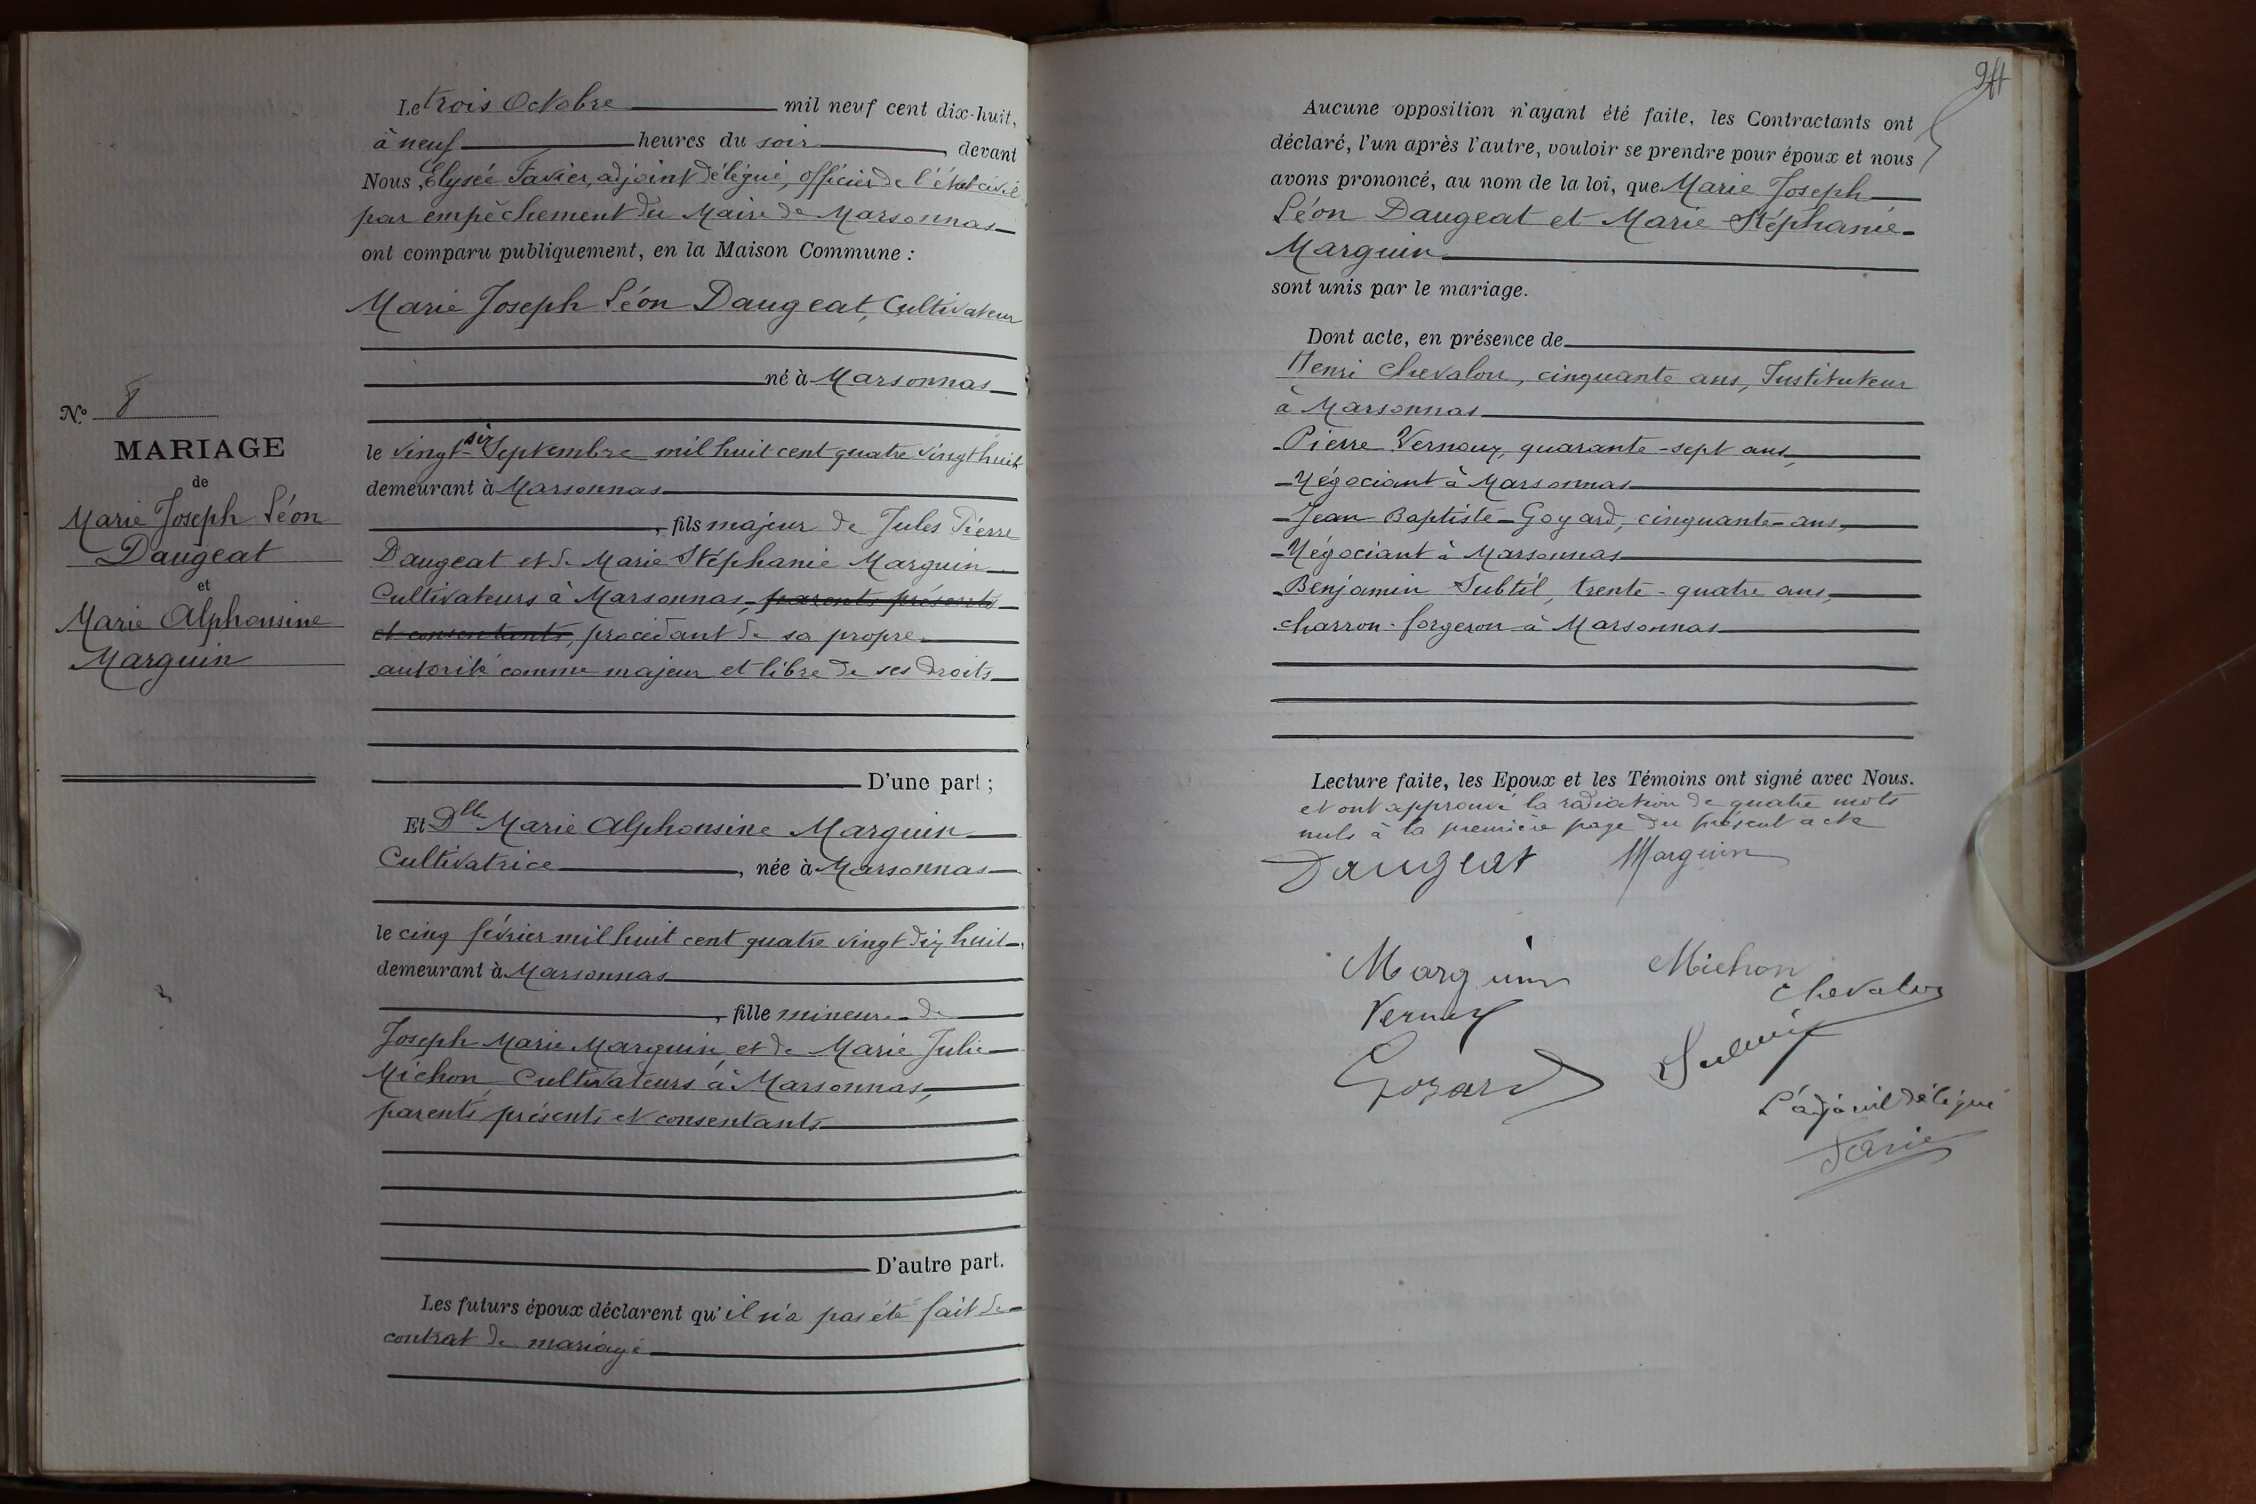 Le trois Octobre mil neuf cent dix-huit,
à neuf heures du soir, devant
Nous, Elysée Favier, adjoint délégué, officier de l'état civil
par empêchement du Maire de Marsonnas
ont comparu publiquement, en la Maison Commune :
Marie Joseph Léon Daugeat, Cultivateur
né à Marsonnas
le vingt-six Septembre mil huit cent quatre vingt huit
demeurant à Marsonnas
, fils majeur de Jules Pierre
Daugeat et de Marie Stéphanie Marguin
Cultivateurs à Marsonnas, parents présents
et consentants, procédant de sa propre
autorité comme majeur et libre de ses droits
D'une part ;
Nº 8
MARIAGE
de
Marie Joseph Léon
Daugeat
et
Marie Alphonsine
Marguin
Et Dlle Marie Alphonsine Marguin
Cultivatrice, née à Marsonnas
le cinq février mil huit cent quatre vingt dix huit
demeurant à Marsonnas
, fille mineure de
Joseph Marie Marguin et de Marie Julie
Michon Cultivateurs à Marsonnas,
parents présents et consentants
D'autre part.
Les futurs époux déclarent qu'il n'a pas été fait de
contrat de mariage
Aucune opposition n'ayant été faite, les Contractants ont
déclaré, l'un après l'autre, vouloir se prendre pour époux et nous
avons prononcé, au nom de la loi, que Marie Joseph
Léon Daugeat et Marie Stéphanie
Marguin
sont unis par le mariage.
Dont acte, en présence de
Henri Chevalon, cinquante ans, Instituteur
à Marsonnas
Pierre Vernoux, quarante-sept ans,
Négociant à Marsonnas
Jean Baptiste Goyard, cinquante ans,
Négociant à Marsonnas
Benjamin Subtil, trente-quatre ans,
charron-forgeron à Marsonnas
Lecture faite, les Epoux et les Témoins ont signé avec Nous.
et ont approuvé la radiation de quatre mots
nuls à la première page du présent acte
Daugeat Marguin
Marguin Michon
Chevalon
Goyard
L'adjoint délégué